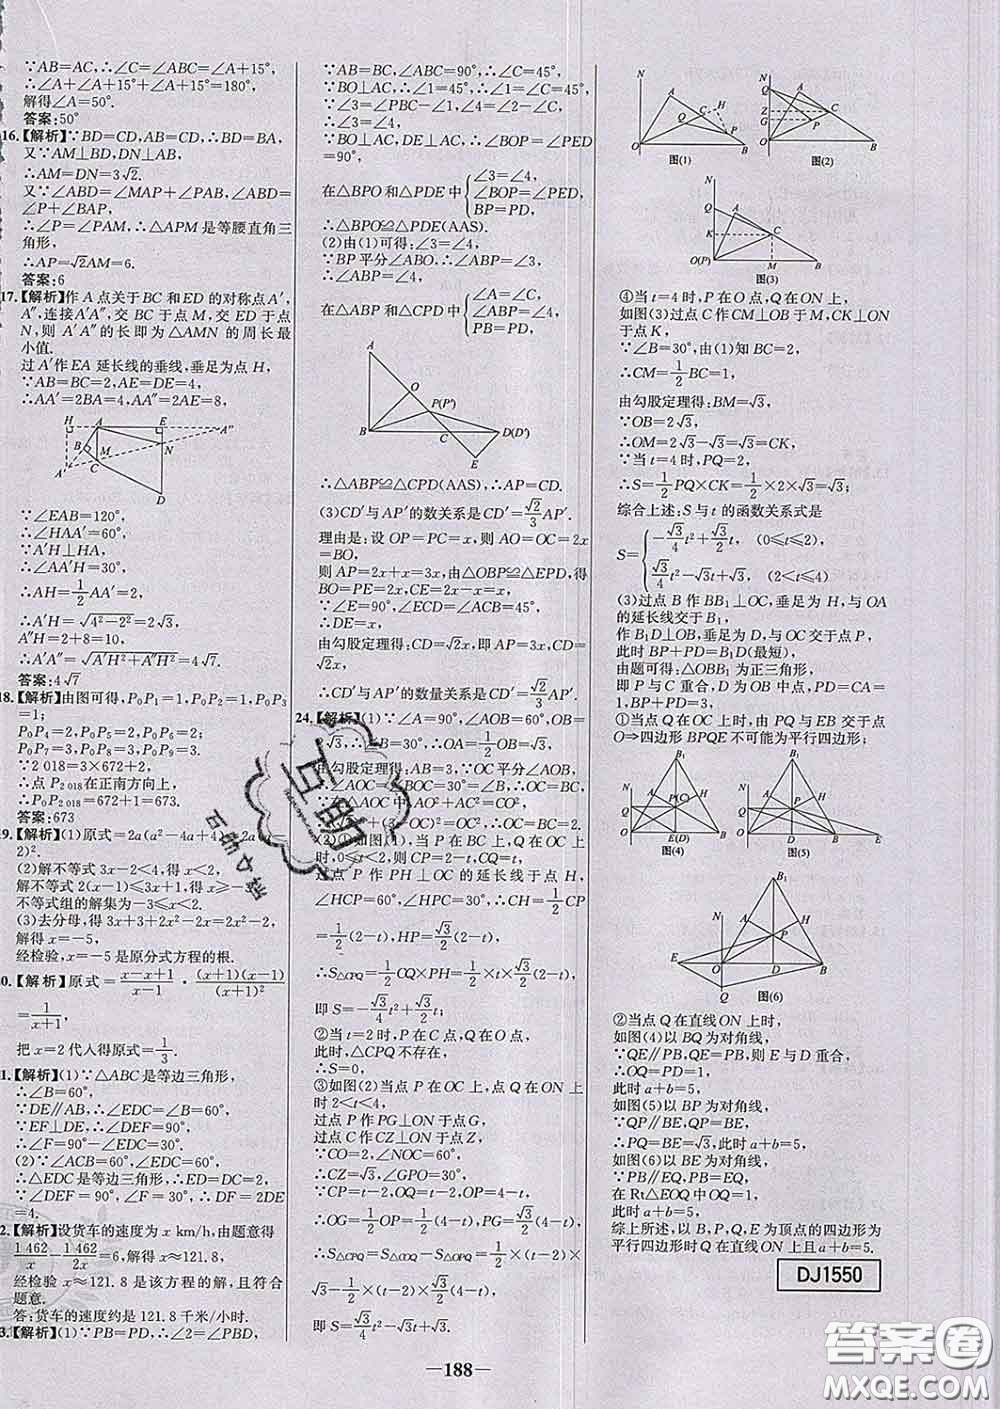 ∵AB=AC,∴∠C=∠ABC=∠A+15°,
∴∠A+∠A+15°+∠A+15°=180°,
解得∠A=50°.
答案:50°
16.【解析】∵BD=CD,AB=CD,∴BD=BA,
又∵AM⊥BD,DN⊥AB,
∴AM=DN=3√2.
又∵∠ABD=∠MAP+∠PAB,∠ABD=
∠P+∠BAP,
∴∠P=∠PAM,∴△APM是等腰直角三
角形,
∴AP=√2AM=6.
答案:6
17.【解析】作A点关于BC和ED的对称点A′,
A″,连接A′A″,交BC于点M,交ED于点
N,则A′A″的长即为△AMN的周长最
小值.
过A′作EA延长线的垂线,垂足为点H,
∵AB=BC=2,AE=DE=4,
∴AA′=2BA=4,AA″=2AE=8,
H A E A″
B M N
A′ C
D
∵∠EAB=120°,
∴∠HAA′=60°,
∵A′H⊥HA,
∴∠AA′H=30°,
∴AH=1/2AA′=2,
∴A′H=√(4²-2²)=2√3,
A″H=2+8=10,
∴A′A″=√(A′H²+A″H²)=4√7.
答案:4√7
18.【解析】由图可得,P₀P₁=1,P₀P₂=1,P₀P₃
=1;
P₀P₄=2,P₀P₅=2,P₀P₆=2;
P₀P₇=3,P₀P₈=3,P₀P₉=3;
∵2 018=3×672+2,
∴点P₂ ₀₁₈在正南方向上,
∴P₀P₂ ₀₁₈=672+1=673.
答案:673
19.【解析】(1)原式=2a(a²-4a+4)=2a(a-
2)².
(2)解不等式3x-2<4,得x<2,
解不等式2(x-1)≤3x+1,得x≥-3,
不等式组的解集为-3≤x<2.
(3)去分母,得3x+3+2x²-2x=2x²-2,
解得x=-5,
经检验,x=-5是原分式方程的根.
0.【解析】原式=(x-x+1)/(x-1)·(x+1)(x-1)/(x+1)²
=1/(x+1),
把x=2代入得原式=1/3.
1.【解析】(1)∵△ABC是等边三角形,
∴∠B=60°,
∵DE∥AB,∴∠EDC=∠B=60°,
∵EF⊥DE,∴∠DEF=90°,
∴∠F=90°-∠EDC=30°.
(2)∵∠ACB=60°,∠EDC=60°,
∴△EDC是等边三角形,∴ED=DC=2,
∵∠DEF=90°,∠F=30°,∴DF=2DE
=4.
2.【解析】设货车的速度为x km/h,由题意得
1 462/x-1 462/2x=6,解得x≈121.8,
经检验x≈121.8是该方程的解,且符合
题意.
答:货车的速度约是121.8千米/小时.
3.【解析】(1)∵PB=PD,∴∠2=∠PBD,
∵AB=BC,∠ABC=90°,∴∠C=45°,
∵BO⊥AC,∴∠1=45°,∴∠1=∠C=45°,
∵∠3=∠PBC-∠1,∠4=∠2-∠C,
∴∠3=∠4,
∵BO⊥AC,DE⊥AC,∴∠BOP=∠PED
=90°,
在△BPO和△PDE中{∠3=∠4,
∠BOP=∠PED,
BP=PD,
∴△BPO≌△PDE(AAS).
(2)由(1)可得:∠3=∠4,
∵BP平分∠ABO.∴∠ABP=∠3,
∴∠ABP=∠4,
在△ABP和△CPD中{∠A=∠C,
∠ABP=∠4,
PB=PD,
A
O
P(P′)
B C D(D′)
E
∴△ABP≌△CPD(AAS),∴AP=CD.
(3)CD′与AP′的数关系是CD′=√2/3AP′.
理由是:设OP=PC=x,则AO=OC=2x
=BO,
则AP=2x+x=3x,由△OBP≌△EPD,得
BO=PE=2x,CE=2x-x=x,
∵∠E=90°,∠ECD=∠ACB=45°,
∴DE=x,
由勾股定理得:CD=√2x,即AP=3x,CD
=√2x,
∴CD′与AP′的数量关系是CD′=√2/3AP′.
24.【解析】(1)∵∠A=90°,∠AOB=60°,OB=
2√3,∴∠B=30°,∴OA=1/2OB=√3,
由勾股定理得:AB=3,∵OC平分∠AOB,
∴∠AOC=∠BOC=30°=∠B,∴OC=BC,
(2)①如图(1),当P在BC上,Q在OC上
时,0≤t<2,则CP=2-t,CQ=t,
过点P作PH⊥OC的延长线于点H,
∠HCP=60°,∠HPC=30°,∴CH=1/2CP
=1/2(2-t),HP=√3/2(2-t),
∴S△CPQ=1/2CQ×PH=1/2×t×√3/2(2-t),
即S=-√3/4t²+√3/2t;
②当t=2时,P在C点,Q在O点,
此时,△CPQ不存在,
∴S=0.
③如图(2)当点P在OC上,点Q在ON上
时2<t<4,
过点P作PG⊥ON于点G,
过点C作CZ⊥ON于点Z,
∵CO=2,∠NOC=60°,
∴CZ=√3,∠GPO=30°,
∵CP=t-2,OQ=t-2,OP=4-t,
∴OG=1/2OP=1/2(4-t),PG=√3/2(4-t),
∴S△CPQ=S△COQ-S△OPQ
=1/2×(t-2)×√3-1/2×(t-2)×√3/2(4-t),
即S=√3/4t²-√3t+√3.
图(1)
图(2)
图(3)
④当t=4时,P在O点,Q在ON上,
如图(3)过点C作CM⊥OB于M,CK⊥ON
于点K,
∵∠B=30°,由(1)知BC=2,
∴CM=1/2BC=1,
由勾股定理得:BM=√3,
∵OB=2√3,
∴OM=2√3-√3=√3=CK,
∵当t=4时,PQ=2,
∴S=1/2PQ×CK=1/2×2×√3=√3;
综合上述:S与t的函数关系式是
S={-√3/4t²+√3/2t,(0≤t≤2)
√3/4t²-√3t+√3,(2<t≤4)
(3)过点B作BB₁⊥OC,垂足为H,与OA
的延长线交于B₁,
作B₁D⊥OB,垂足为D,与OC交于点P,
此时BP+PD=B₁D(最短),
由题可得:△OBB₁为正三角形,
即P与C重合,D为OB中点,PD=CA=1
①当点Q在OC上时,由PQ与EB交于点
O⇒四边形BPQE不可能为平行四边形;
图(4)
图(5)
图(6)
②当点Q在直线ON上时,
如图(4)以BQ为对角线,
∵QE∥PB,QE=PB,则E与D重合,
∴OQ=PD=1,
此时a+b=5,
如图(5)以BP为对角线,
∵QP∥BE,QP=BE,
∴PQ=BE=√3,此时a+b=5,
如图(6)以BE为对角线,
∵PB∥EQ,PB=EQ,
在Rt△EOQ中OQ=1,
此时a+b=5.
综上所述,以B,P,Q,E为顶点的四边形为
平行四边形时Q在直线ON上且a+b=5.
DJ1550
—188—
互助
答案圈
MXQE.COM